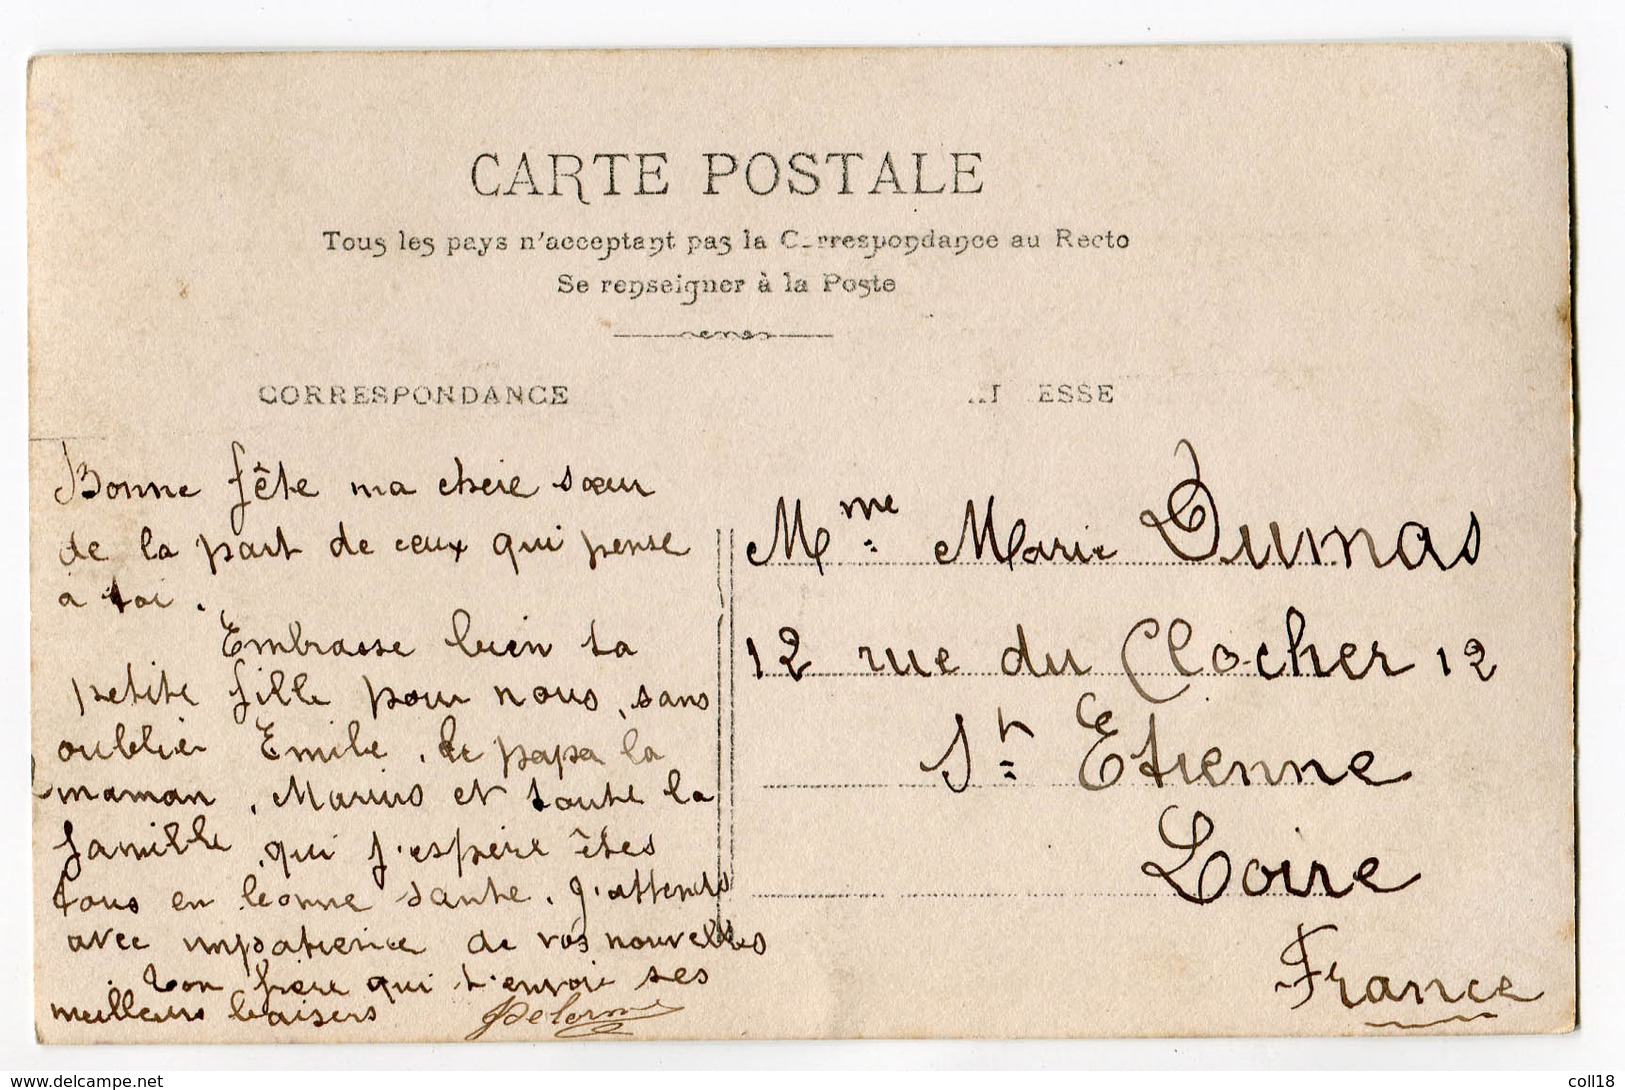 CARTE POSTALE
Tous les pays n'acceptant pas la C rrespondance au Recto
Se renseigner à la Poste
CORRESPONDANCE
ESSE
Bonne fête ma chere sœur
de la part de ceux qui pense
à toi.
Embrasse bien ta
petite fille pour nous, sans
oublier Emile, le papa la
maman, Marius et toute la
famille, qui j'espère êtes
tous en bonne sante. J'attends
avec impatience de vos nouvelles
Ton frère qui t'envoie ses
meilleurs baisers
Mme Marie Dumas
12 rue du Clocher 12
St Etienne
Loire
France
www.delcampe.net
coll18